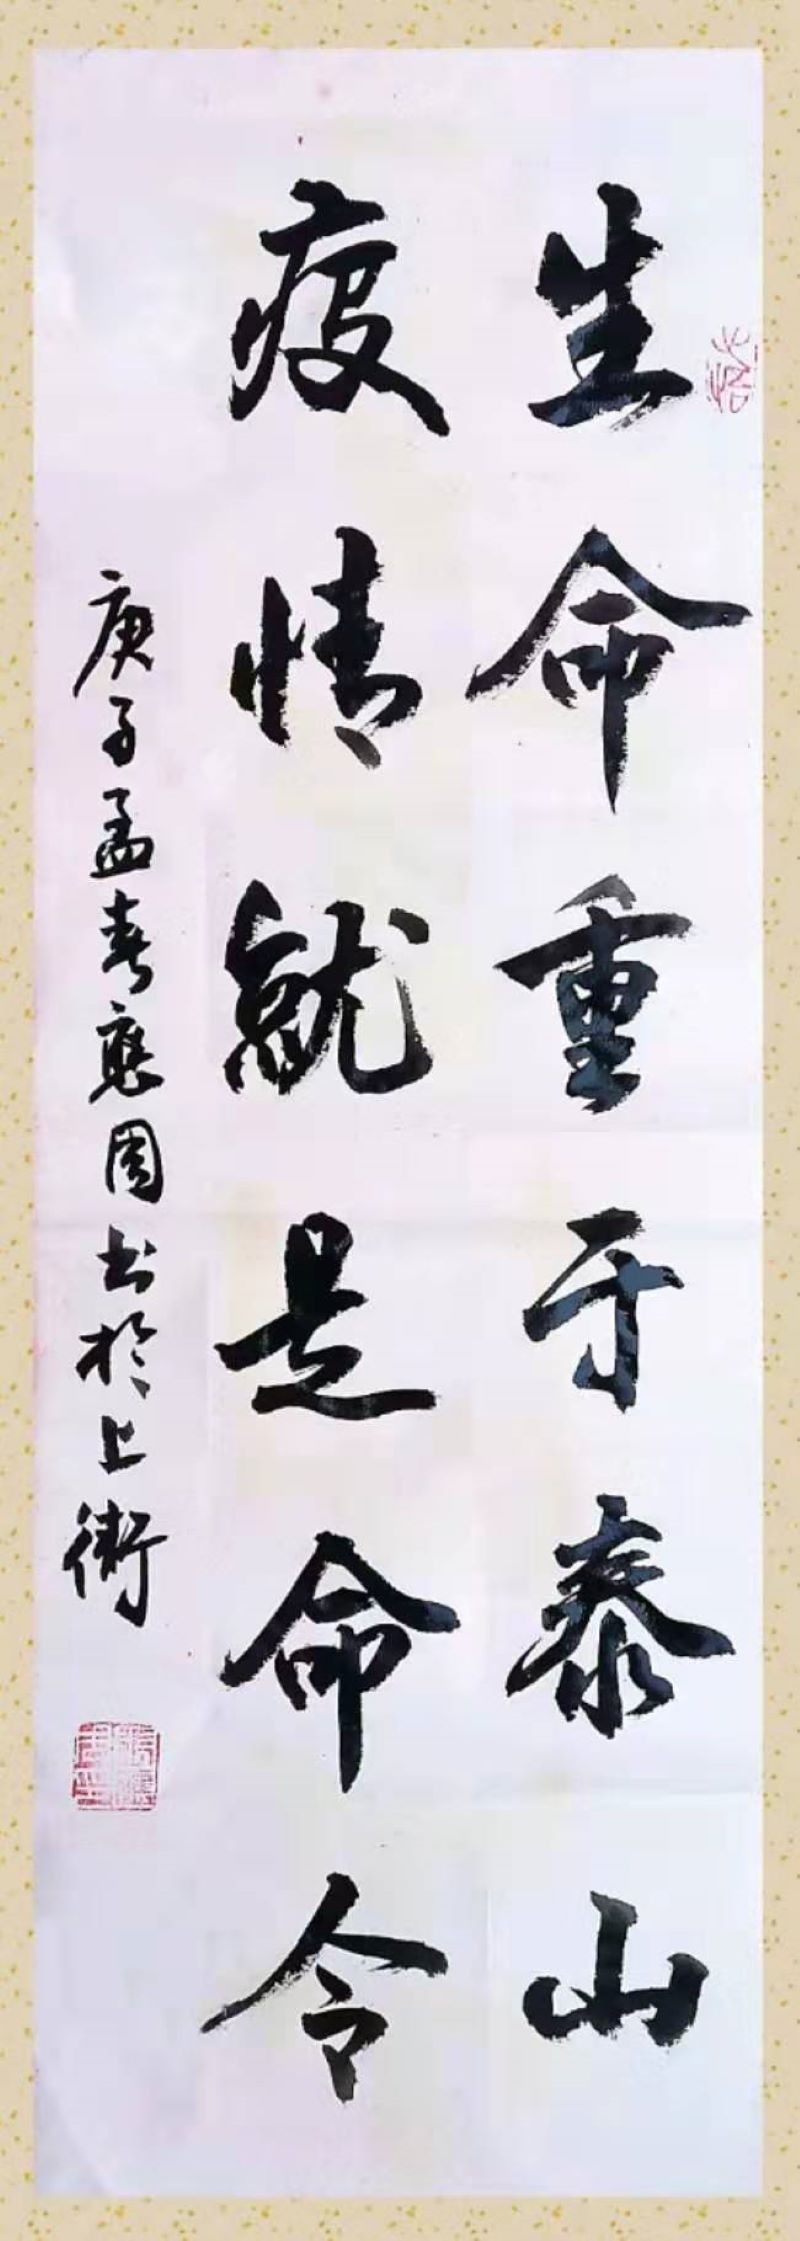 生命重于泰山
疫情就是命令
庚子孟春應周书於上街